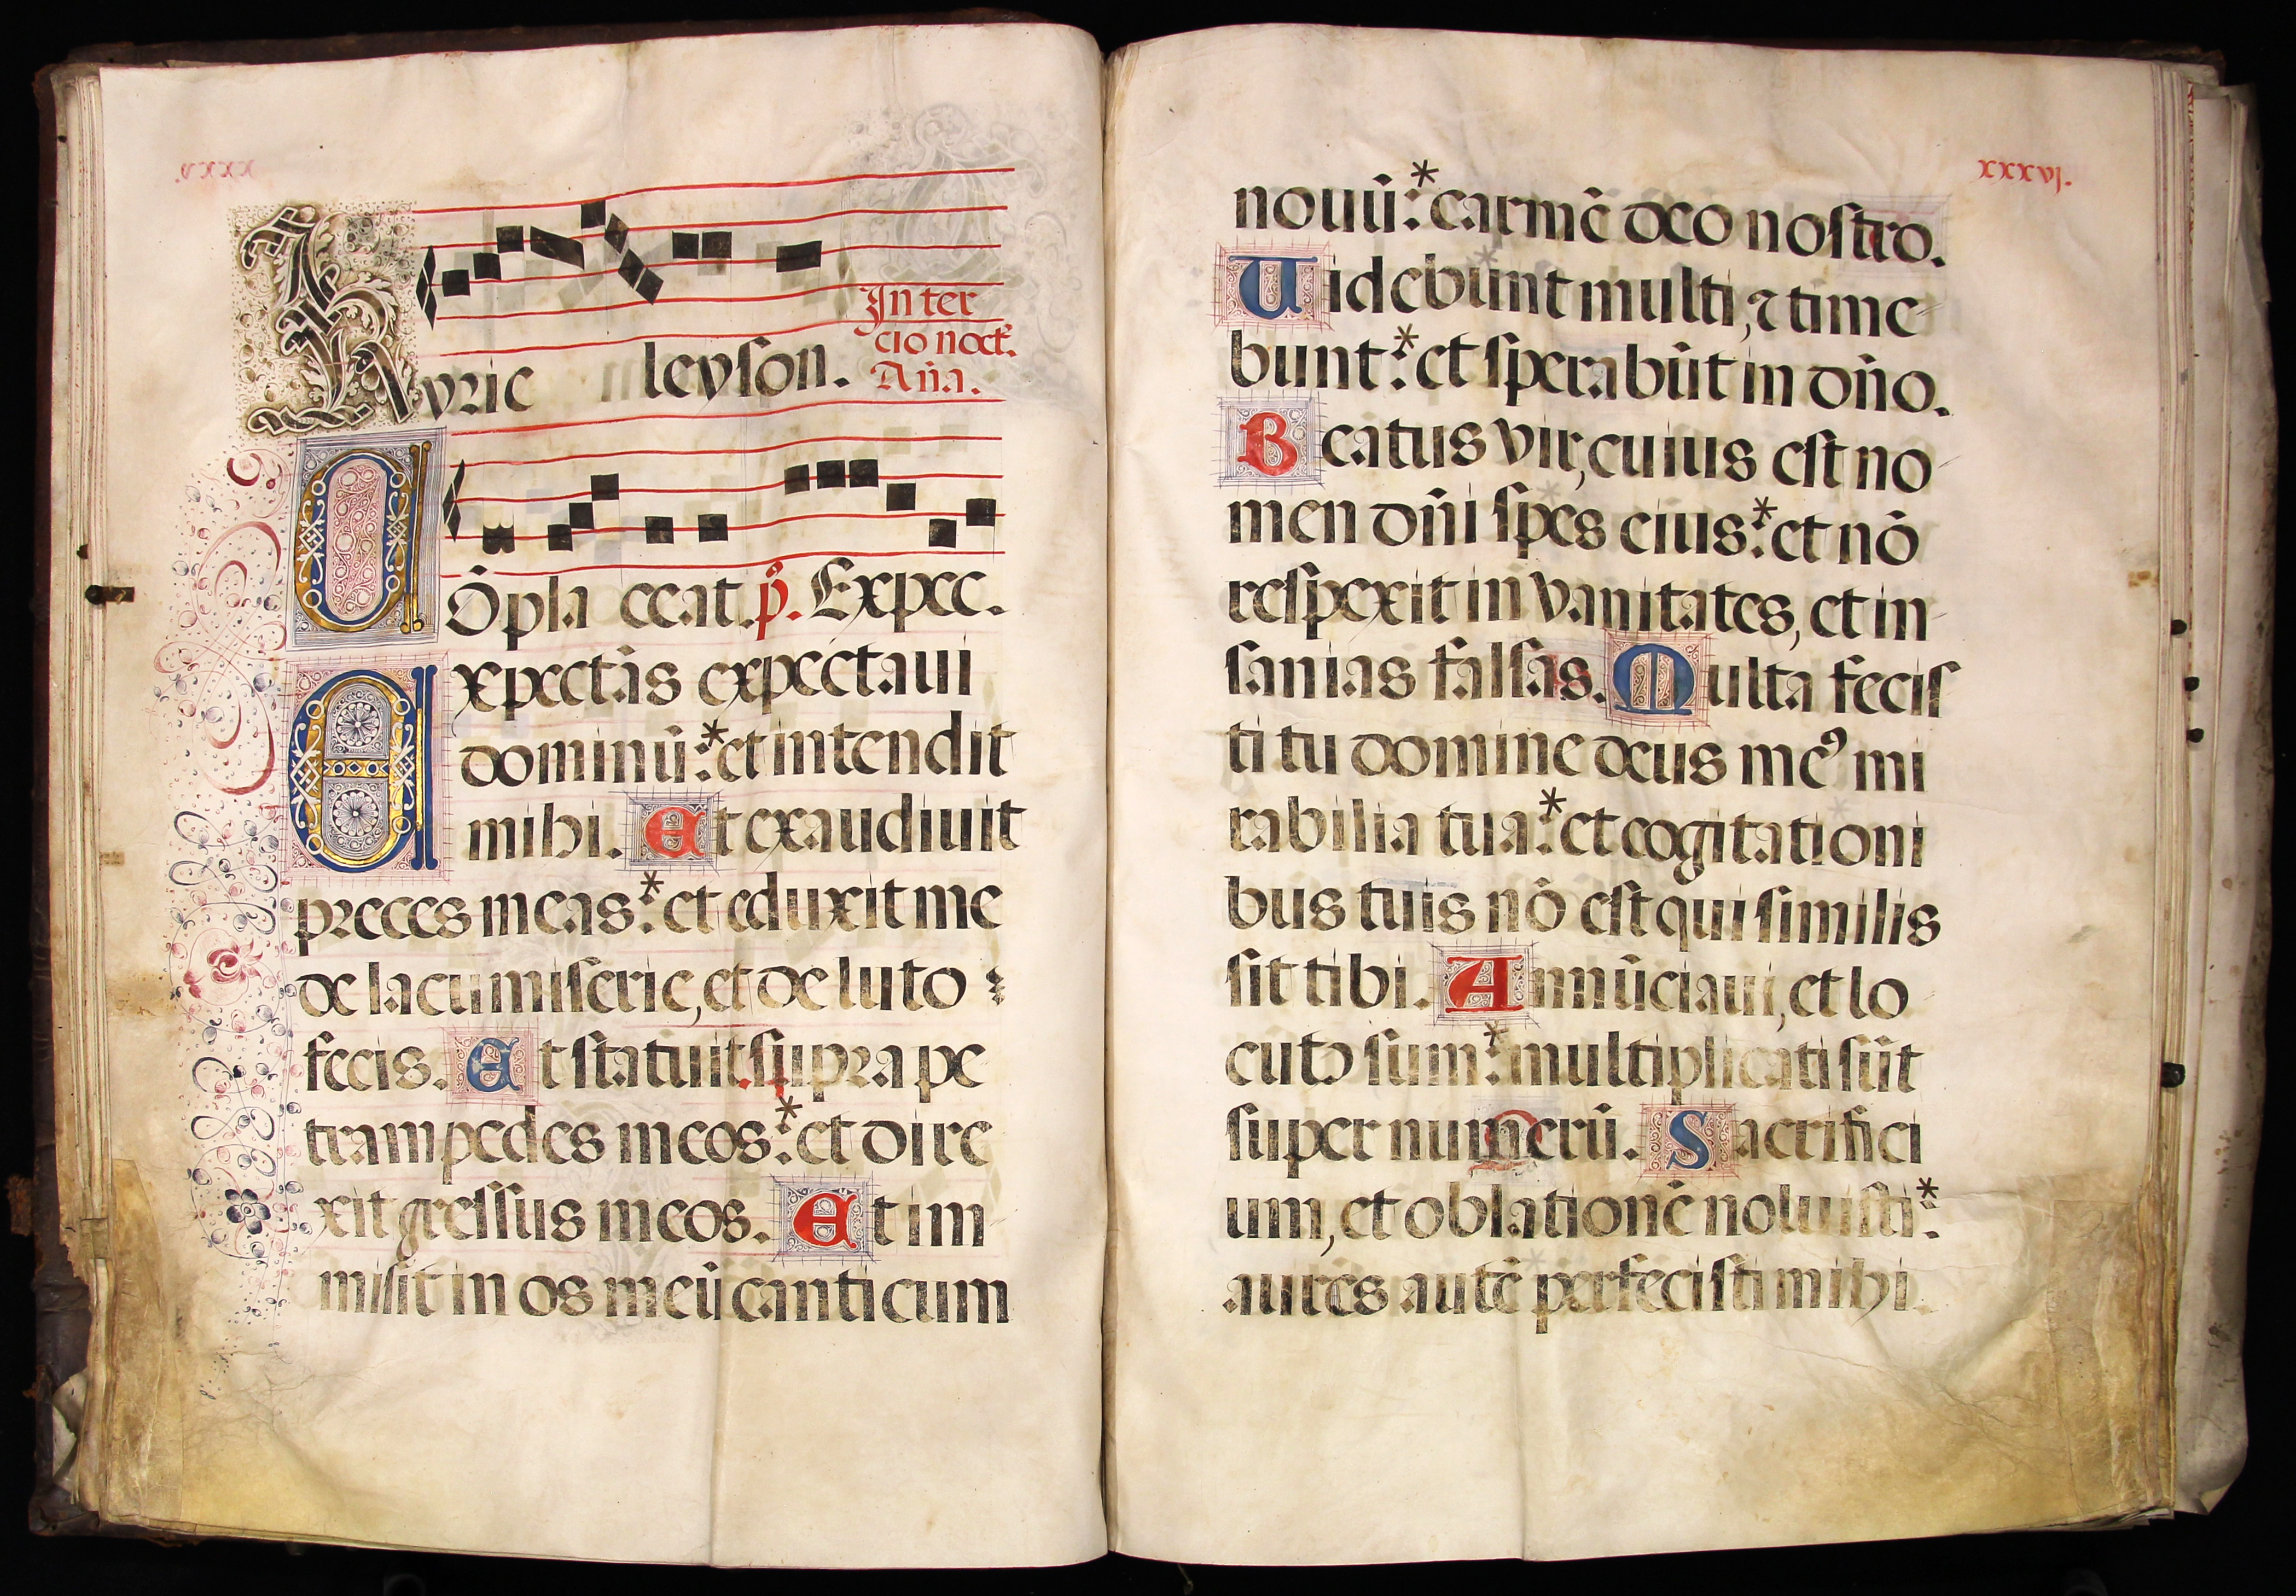 Kyrie leyson.
In ter
cio noct̄.
An̄a.
Cōpla ceat. p̄. Expec.
Expectās expectaui
dominū: * et intendit
mihi. Et exaudiuit
preces meas: * et eduxit me
de lacu miserie, et de luto
fecis. Et statuit supra pe
tram pedes meos: * et dire
xit gressus meos. Et im
misit in os meū canticum
xxxvj.
nouū: * carmē deo nostro.
Uidebunt multi, ⁊ time
bunt: * et sperabūt in dn̄o.
Beatus vir, cuius est no
men dn̄i spes eius: * et nō
respexit in vanitates, et in
sanias falsas. Multa fecis
ti tu domine deus meꝰ mi
rabilia tua: * et cogitationi
bus tuis nō est qui similis
sit tibi. Annūciaui, et lo
cutꝰ sum: * multiplicati sūt
super numerū. Sacrifici
um, et oblationē noluisti: *
aures autē perfecisti mihi.